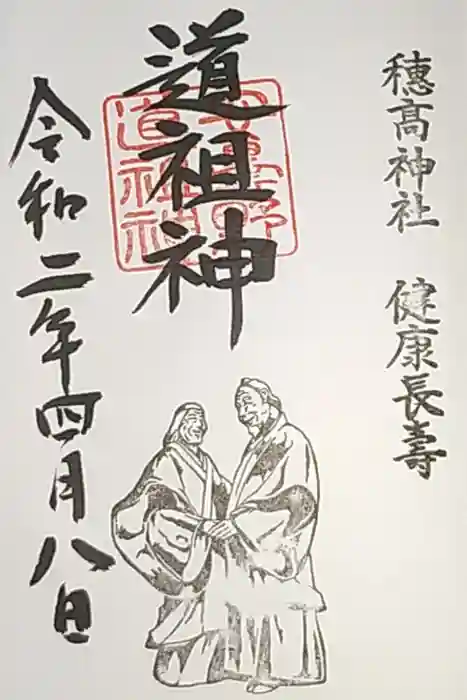 穗髙神社 健康長壽
道祖神
安曇野
道祖神
令和二年四月八日